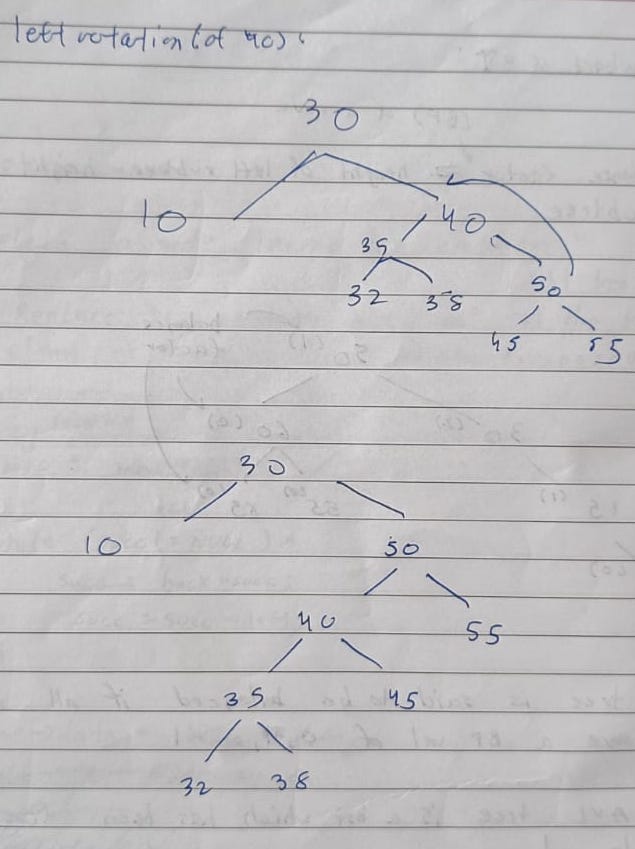 left rotation (of 40) :
30
10 40
35
32 38 50
45 55
30
10 50
40 55
35 45
32 38